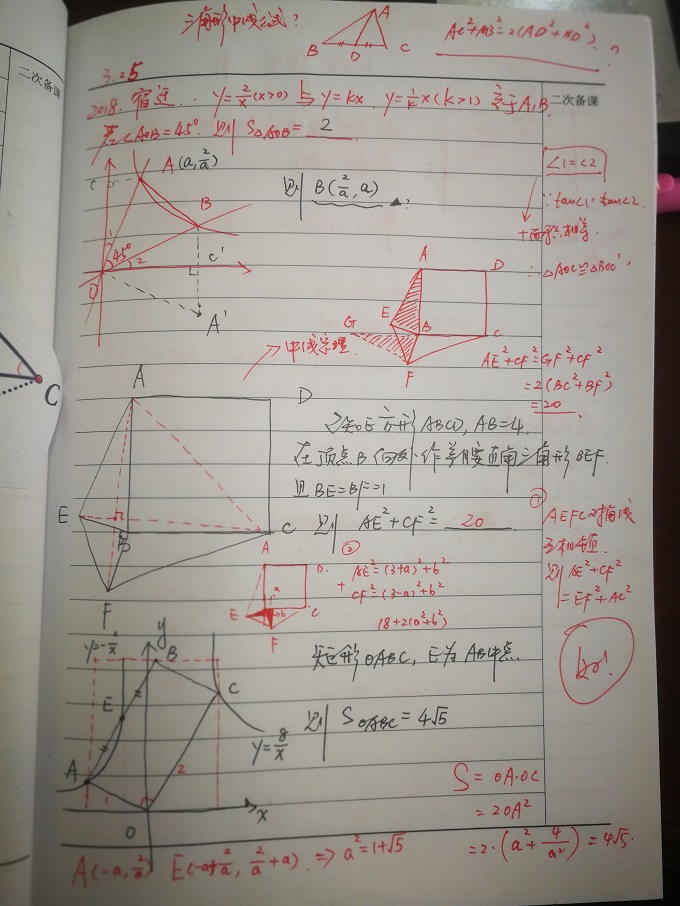 三角形中线公式?
A
B
D
C
AC²+AB²=2(AD²+BD²).
?
3.25
二次备课
二次备课
2018. 宿迁. y=2/x(x>0)与y=kx, y=1/k x(k>1)交于A,B,
若∠AOB=45°. 则S△AOB= 2
A(a, 2/a)
B
45°
2
C'
O
A'
则B(2/a, a)
∠1=∠2
∵tan∠1=tan∠2
+面积相等.
∴△AOC≌△BOC',
A
D
E
G
B
C
F
中线定理.
AE²+CF²=GF²+CF²
=2(BC²+BF²)
=20
A
D
E
B
C
F
已知正方形ABCD, AB=4,
在顶点B向外作等腰直角三角形BEF.
且BE=BF=1
则 AE²+CF²= 20
①
AEFC对角线
互相垂直.
则AE²+CF²
=EF²+AC²
②
A
D.
a
b
E
C
F
AE²=(3+a)²+b²
+
CF²=(3-a)²+b²
18+2(a²+b²)
y=-2/x
y
B
E
C
A
2
1
O
x
y=8/x
矩形OABC, E为AB中点.
则S OABC=4√5
S=OA·OC
=2OA²
=2·(a²+4/a²)=4√5.
A(-a, 2/a) E(-a+2/a, 2/a+a) ⇒a²=1+√5
C